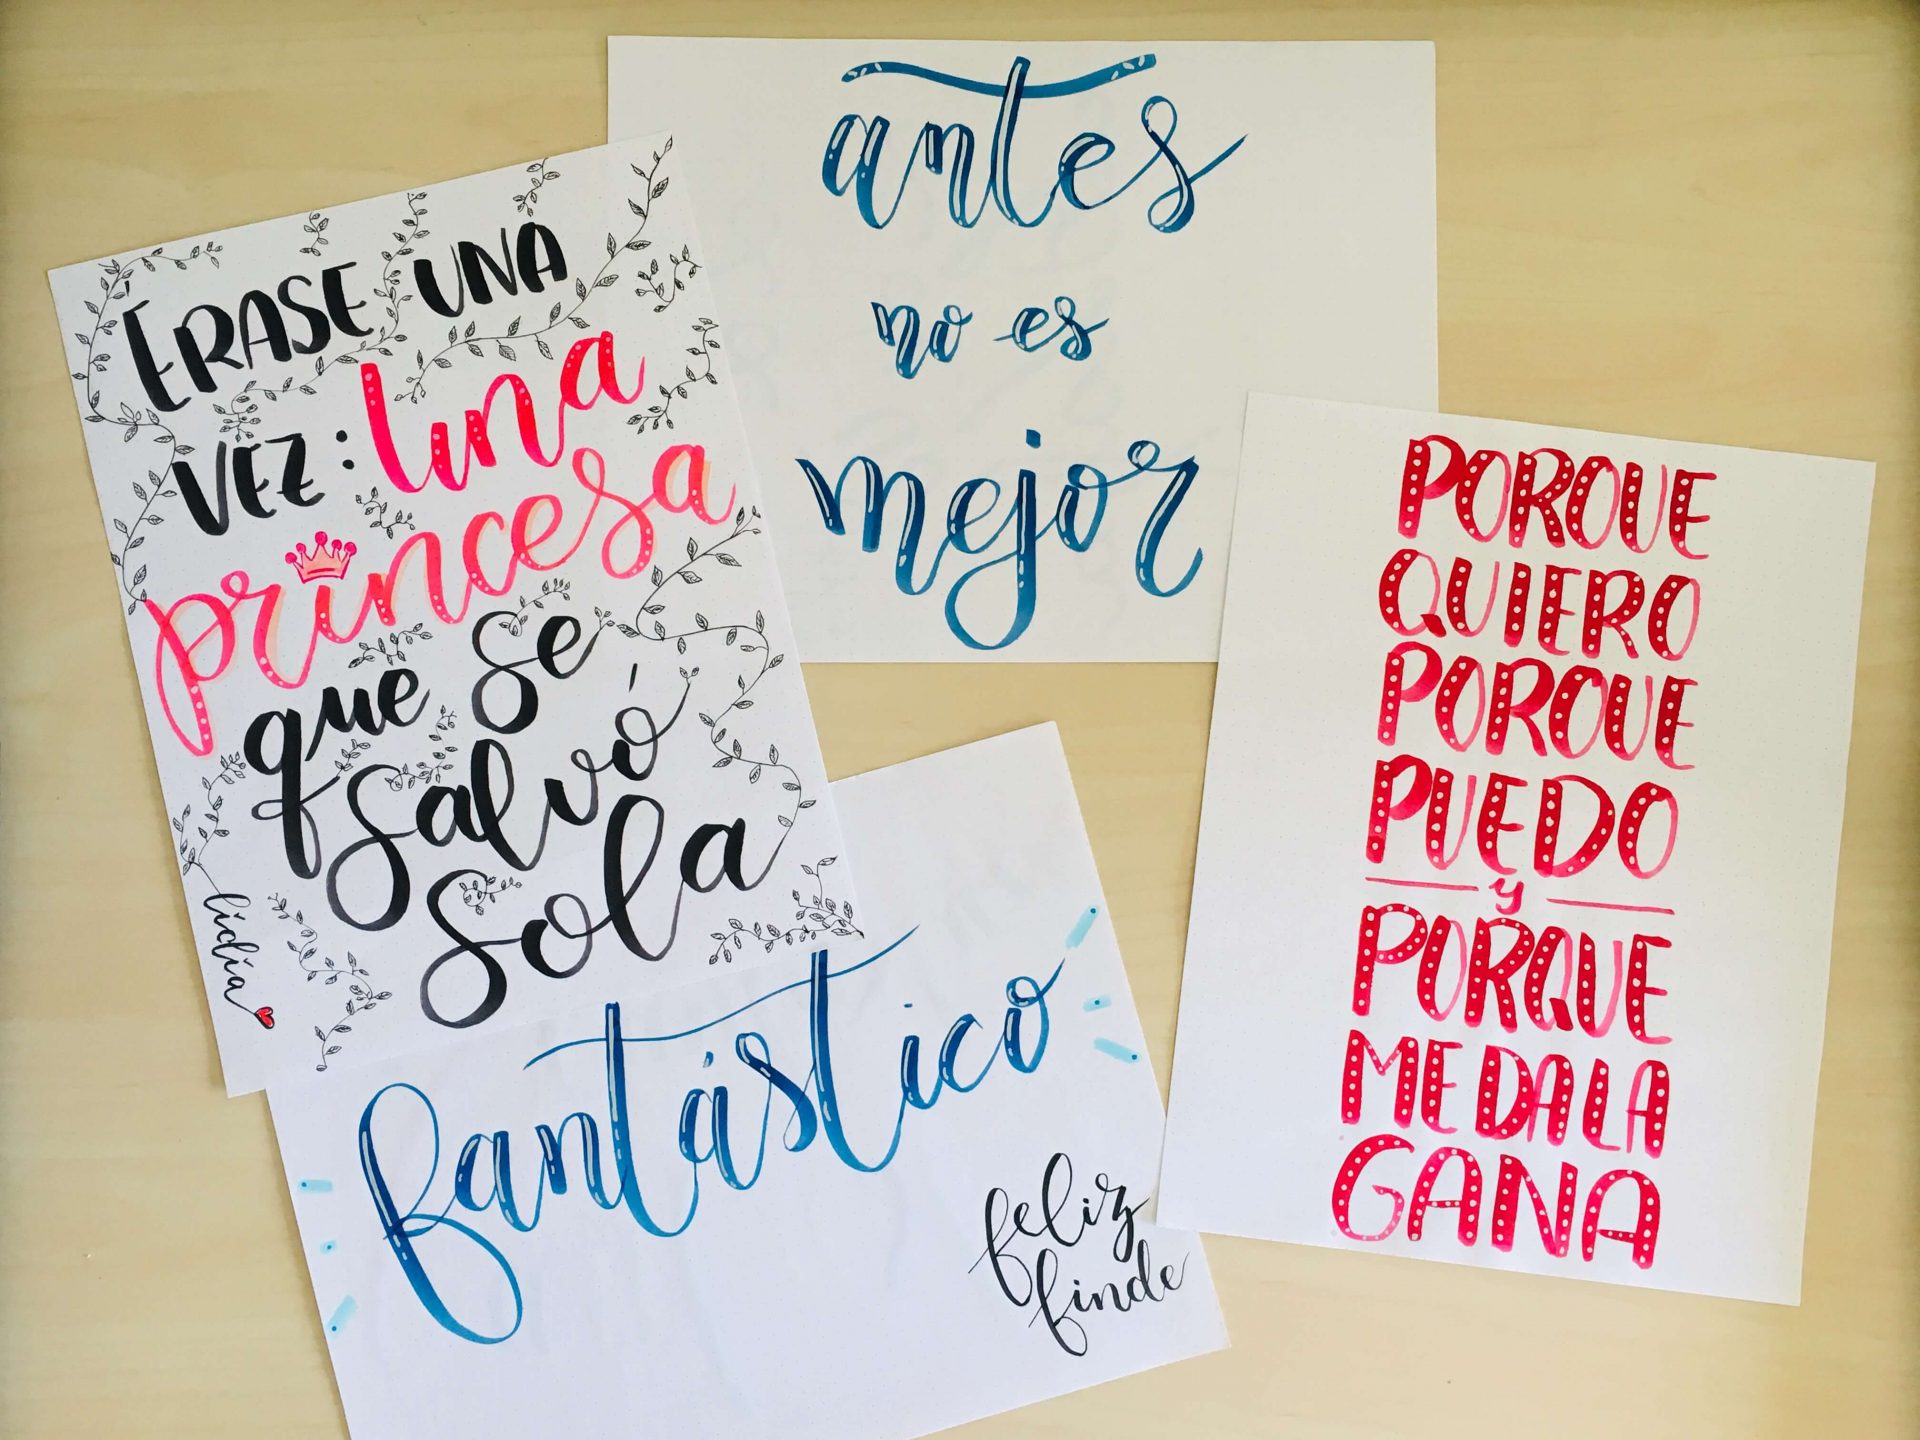 ÉRASE UNA
VEZ: Una
princesa
que se
salvó
sola
lidia
antes
no es
mejor
PORQUE
QUIERO
PORQUE
PUEDO
y
PORQUE
ME DA LA
GANA
fantástico
feliz
finde